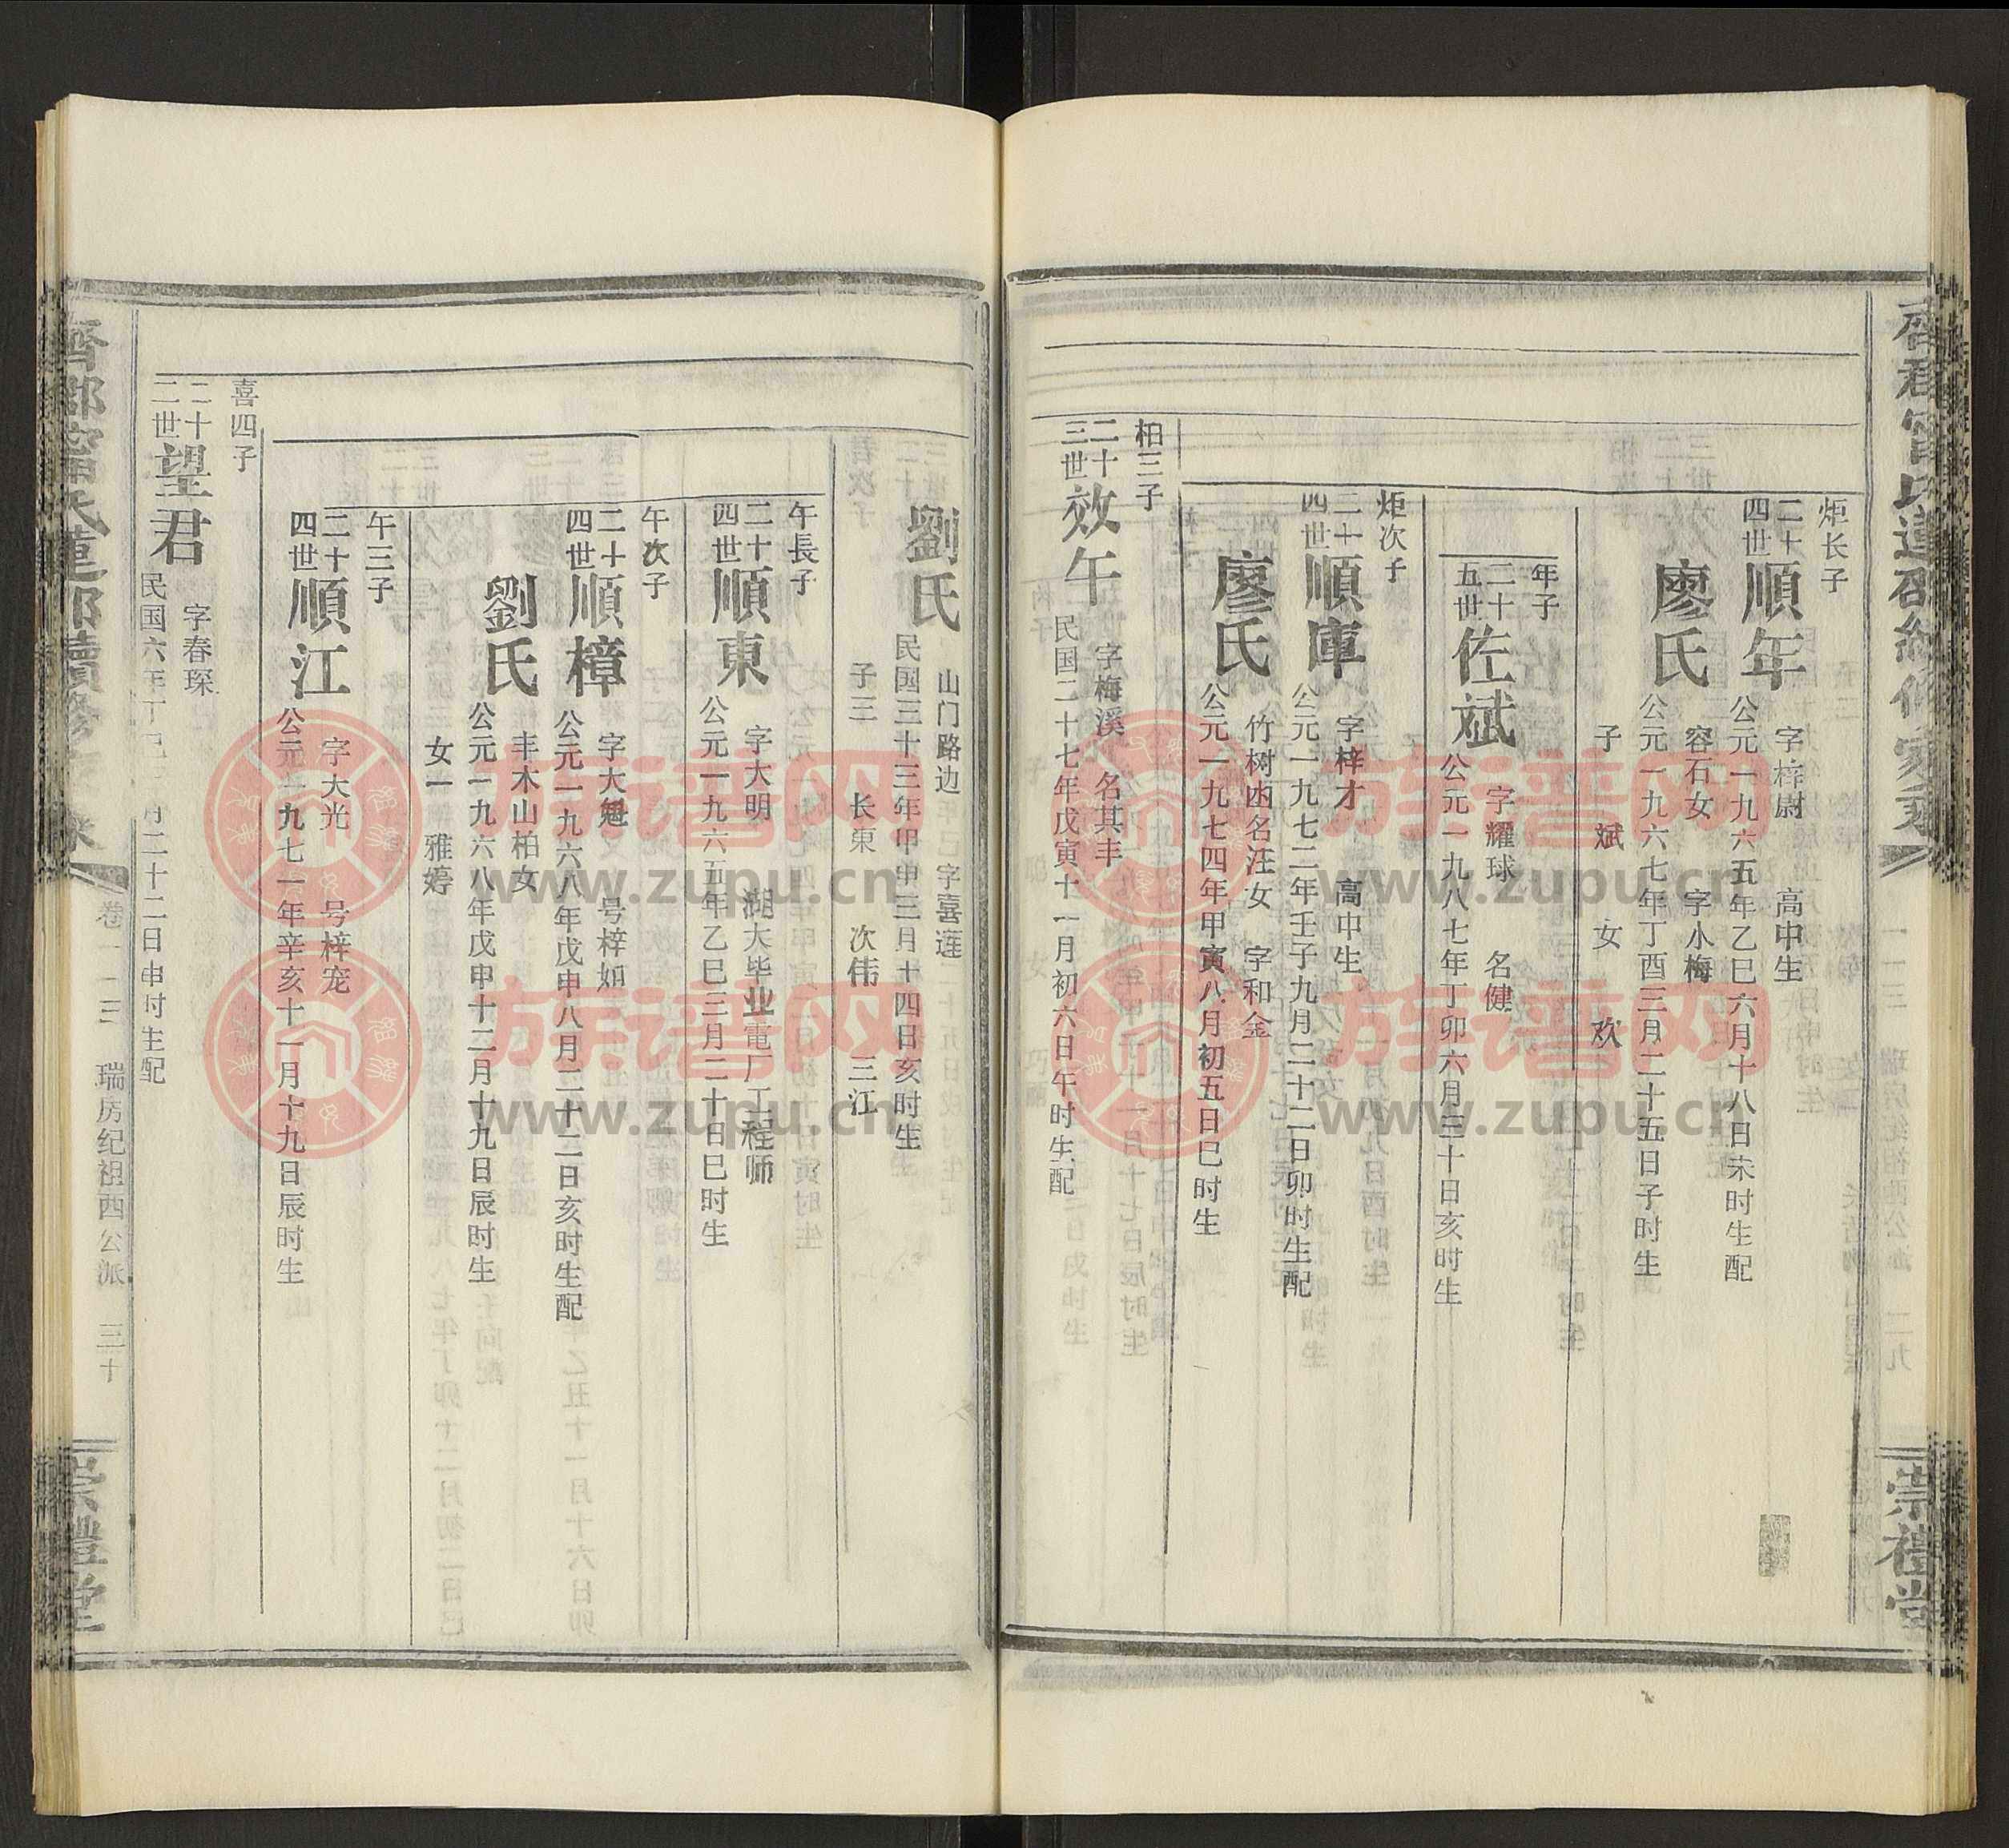 炬长子
二十四世 順年 字梓尉 高中生
公元一九六五年乙巳六月十八日未时生配
廖氏 容石女 字小梅
公元一九六七年丁酉三月二十五日子时生
子 斌 女 欢
年子
二十五世 佐斌 字耀球 名健
公元一九八七年丁卯六月三十日亥时生
炬次子
二十四世 順庫 字梓才 高中生
公元一九七二年壬子九月二十二日卯时生配
廖氏 竹树凼名汪女 字和金
公元一九七四年甲寅八月初五日巳时生
柏三子
二十三世 效午 字梅溪 名其丰
民国二十七年戊寅十一月初六日午时生配
崇禮堂
劉氏 山门路边 字喜莲
民国三十三年甲申三月十四日亥时生
子三 长東 次伟 三江
午長子
二十四世 順東 字大明 湖大毕业電厂工程师
公元一九六五年乙巳三月二十日巳时生
午次子
二十四世 順樟 字大魁 号梓如
公元一九六八年戊申八月二十二日亥时生配
劉氏 丰木山柏女
公元一九六八年戊申十二月十九日辰时生
女一 雅婷
午三子
二十四世 順江 字大光 号梓宠
公元一九七一年辛亥十一月十九日辰时生
喜四子
二十二世 望君 字春琛
民国六年丁巳 月二十二日申时生配
齊郡甯氏蓮邵續修
卷一 三 瑞房纪祖西公派 三十
崇禮堂
族谱网
www.zupu.cn
族谱网
www.zupu.cn
族谱网
www.zupu.cn
族谱网
www.zupu.cn